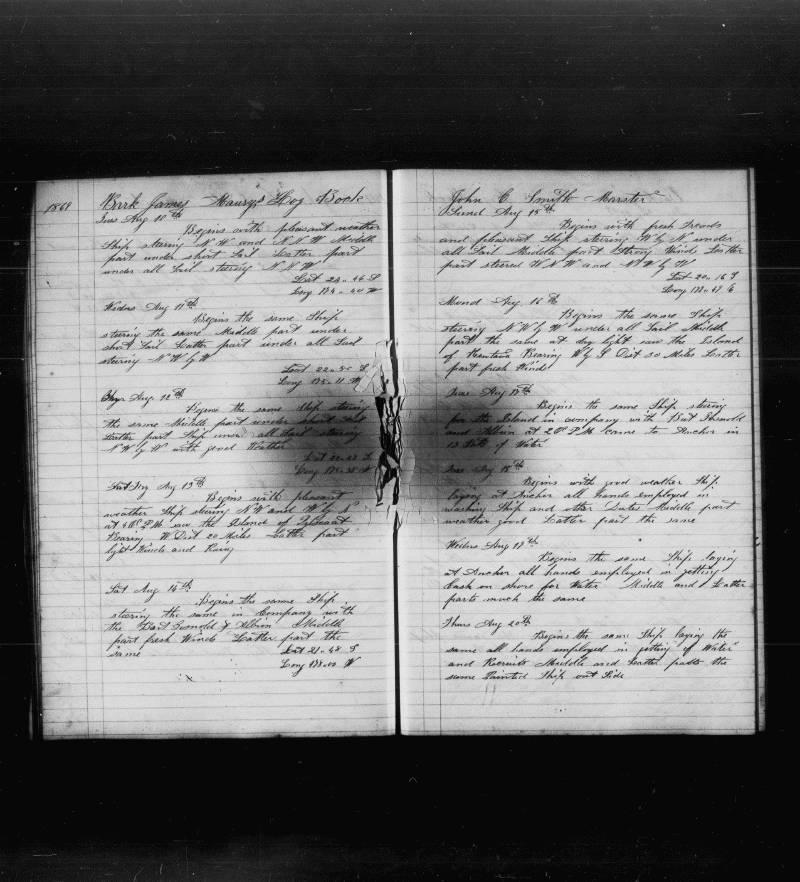 1869
Bark James Maury's Log Book
Tues Aug 10th
Begins with pleasant weather
Ship stering N W and N N W Middle
part under short Sail Latter part
under all Sail stering N N W
Lat 24 " 44 S
Long
Wednes Aug 11th
Begins the same Ship
stering the same Middle part under
short Sail Latter part under all Sail
stering N W by W
Lat 22 " 50 S
Long
Aug 12th
Begins the same Ship stering
the same Middle part under short Sail
Latter part Ship under all Sail stering
N W by W with good Weather
Lat
Long
Aug 13th
Begins with pleasant
weather Ship stering N W and W by N
at P.M saw the Island of
Bearing W Dist 20 Miles Latter part
light Winds and Rainy
Sat Aug 14th
Begins the same Ship
stering the same in Company with
the Bart Gosnold & Albion Middle
part fresh Winds Latter part the
same
Lat 21 " 48 S
Long W
John C Smith Marster
Aug 15th
Begins with fresh
and pleasant Ship stering W by N under
all Sail Middle part Strong Wind Latter
part stered W N W and N W by W
Lat 20 " 16 S
Long
Mond Aug 16th
Begins the same Ship
stering N W by W under all Sail Middle
part the same at day light saw the Island
of Bearing W by S Dist 30 Miles Latter
part fresh Winds
Tues Aug 17th
Begins the same Ship stering
for the Island in company with Bart Gosnold
and Albion at P.M came to Anchor in
13 of Water
Tues Aug 18th
Begins with good weather Ship
laying at Anchor all hands employed in
washing Ship and other Duties Middle part
weather good Latter part the same
Wednes Aug 19th
Begins the same Ship laying
at Anchor all hands employed in getting
Cask on shore for Water Middle and Latter
parts much the same
Thurs Aug 20th
Begins the same Ship laying the
same all hands employed in getting of Water
and Recruits Middle and Latter parts the
same Painted Ship out Side